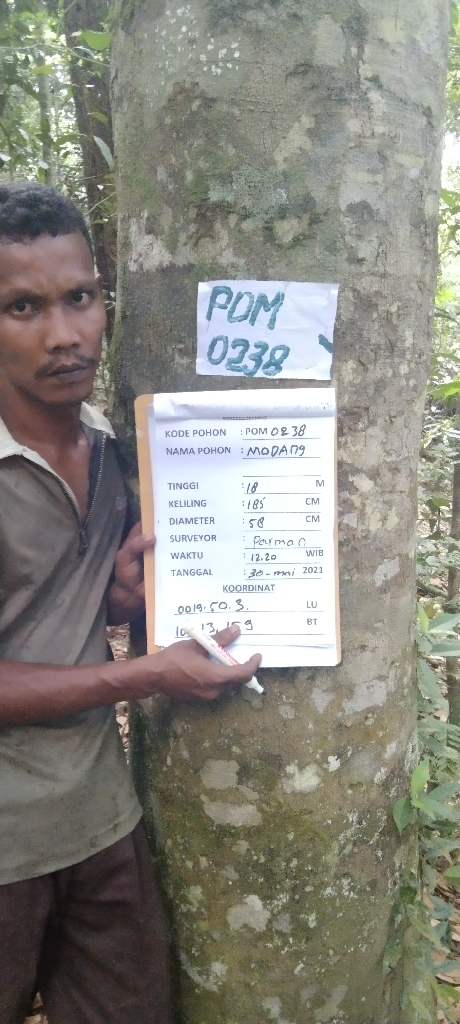 PDM
0238
KODE POHON : POM 0238
NAMA POHON : MODANG
TINGGI : 18 M
KELILING : 185 CM
DIAMETER : 58 CM
SURVEYOR : Parman
WAKTU : 12.20 WIB
TANGGAL : 30-mei 2021
KOORDINAT
0019.50.3. LU
13, 159 BT